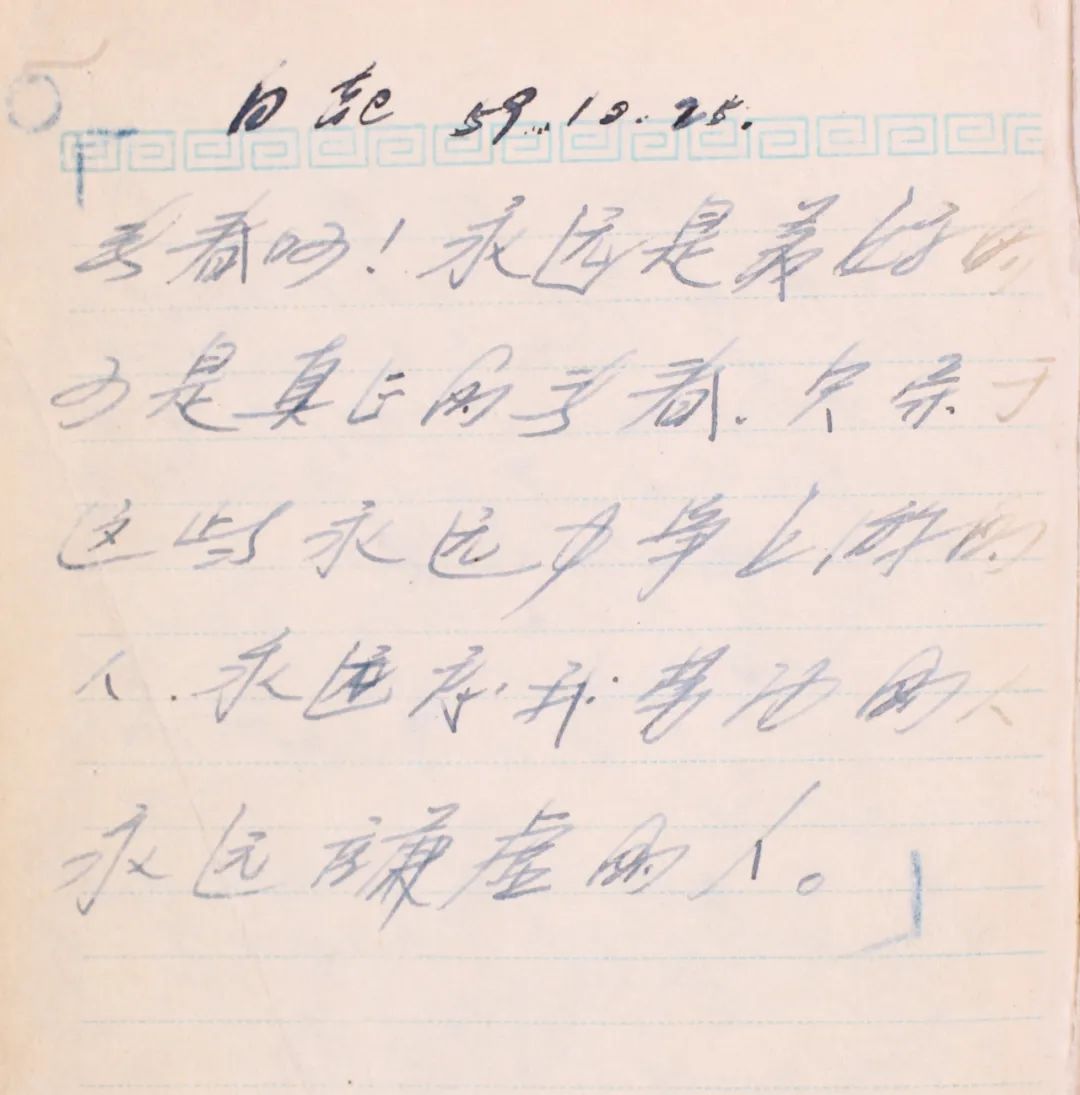 日记 59.10.25.
青春啊!永远是美好的
可是真正的青春.只属于
这些永远力争上游的
人.永远忘我劳动的人
永远謙虚的人。